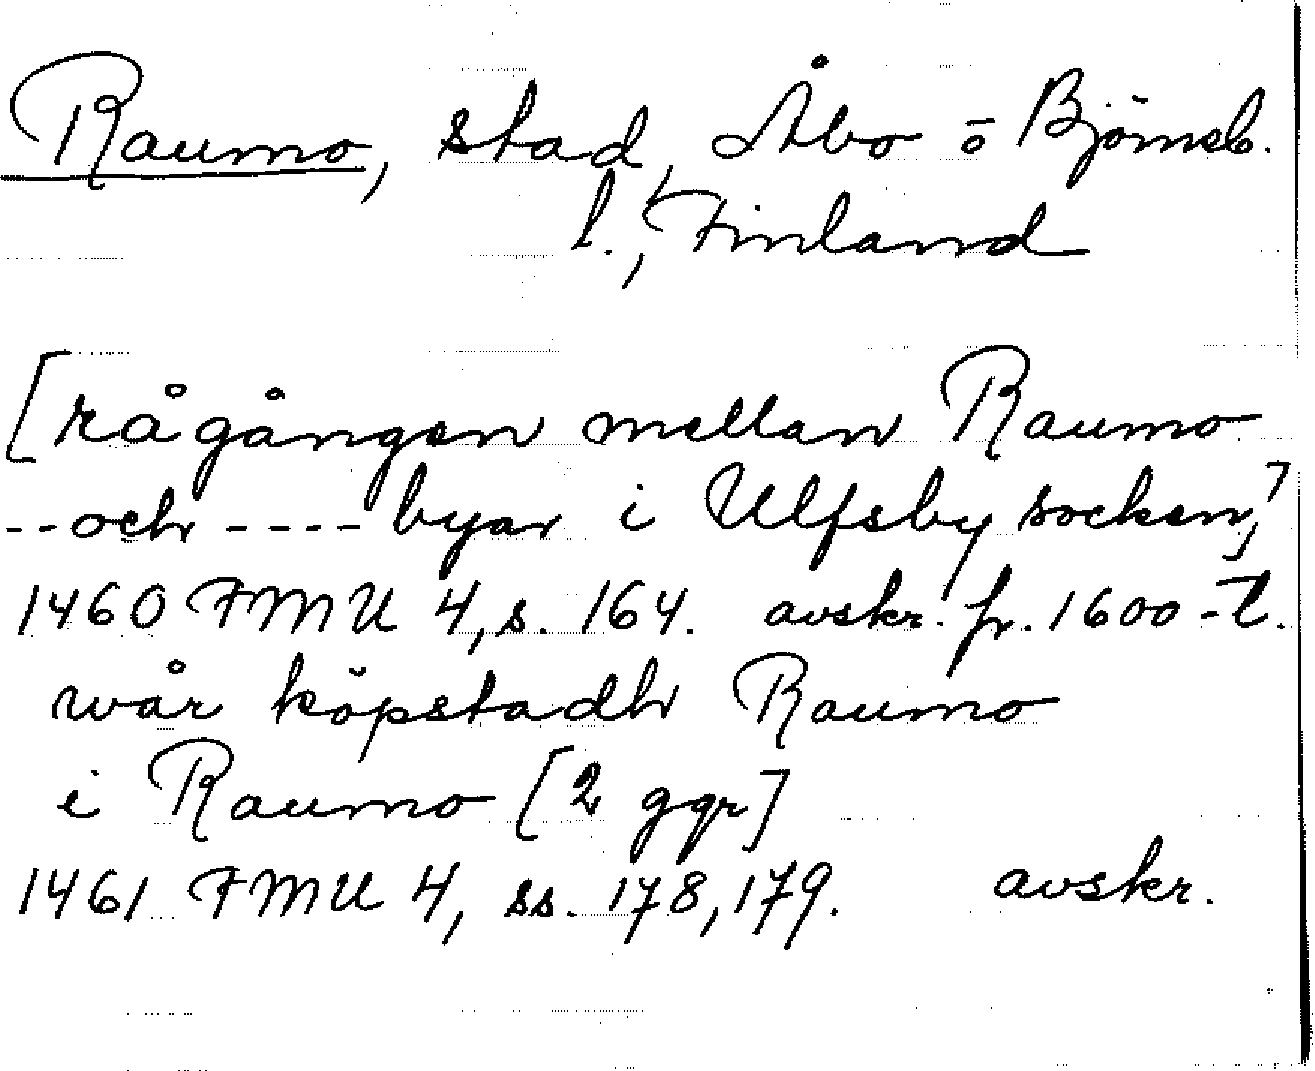 Raumo, stad, Åbo o Björneb.
l., Finland
[rågången mellan Raumo
--och ---- byar i Ulfsby socken]
1460 FMU 4, s. 164. avskr. fr. 1600-t.
wår köpstadh Raumo
i Raumo [2 ggr]
1461 FMU 4, ss. 178, 179. avskr.